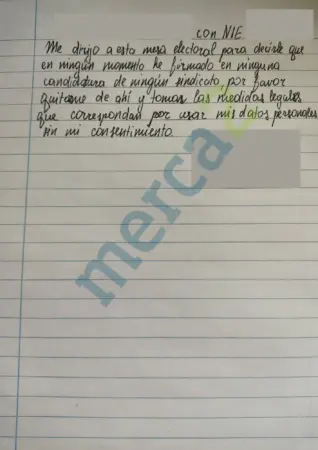 con NIE
Me dirijo a esta mesa electoral para decirle que
en ningún momento he firmado en ninguna
candidatura de ningún sindicato, por favor
quitarme de ahí y tomar las medidas legales
que correspondan por usar mis datos personales
sin mi consentimiento.
merca